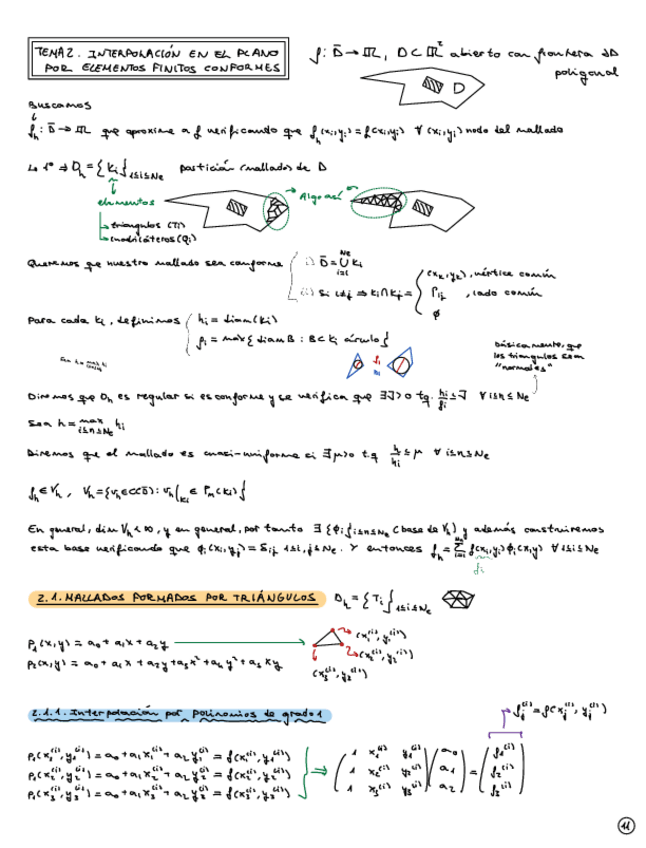 TEMA 2. INTERPOLACIÓN EN EL PLANO
POR ELEMENTOS FINITOS CONFORMES
f: D̄ → ℝ, D ⊂ ℝ² abierto con frontera ∂D
poligonal
D
Buscamos
f_h: D̄ → ℝ que aproxime a f verificando que f_h(x_i, y_i) = f(x_i, y_i) ∀ (x_i, y_i) nodo del mallado
Lo 1º ⇒ D_h = {K_i}_{1≤i≤Ne} partición (mallado) de D
elementos
→ Algo así
→ triángulos (T_i)
→ cuadriláteros (Q_i)
Queremos que nuestro mallado sea conforme { i) D̄ = ∪_{i=1}^{Ne} K_i
ii) Si i≠j ⇒ K_i ∩ K_j = { (x_k, y_k), vértice común
Γ_ij, lado común
∅
Para cada K_i, definimos { h_i = diam(K_i)
ρ_i = max{diam B : B ⊂ K_i círculo}
Básicamente, que
los triángulos sean
"normales"
Diremos que D_h es regular si es conforme y se verifica que ∃ J > 0 t.q. h_i/ρ_i ≤ J ∀ 1≤i≤Ne
Sea h = max_{1≤i≤Ne} h_i
Diremos que el mallado es cuasi-uniforme si ∃ μ > 0 t.q h/h_i ≤ μ ∀ 1≤i≤Ne
f_h ∈ V_h, V_h = {v_h ∈ C(D̄) : v_h|_{K_i} ∈ P_m(K_i)}
En general, dim V_h < ∞, y en general, por tanto ∃ {φ_i}_{1≤i≤Ne} (base de V_h) y además construiremos
esta base verificando que φ_i(x_j, y_j) = δ_ij 1≤i,j≤Ne. Y entonces f_h = Σ_{i=1}^{Ne} f(x_i, y_i) φ_i(x, y) ∀ 1≤i≤Ne
f_i
2.1. MALLADOS FORMADOS POR TRIÁNGULOS D_h = {T_i}_{1≤i≤Ne}
P₁(x, y) = a₀ + a₁x + a₂y
(x₁⁽ⁱ⁾, y₁⁽ⁱ⁾)
(x₂⁽ⁱ⁾, y₂⁽ⁱ⁾)
P₂(x, y) = a₀ + a₁x + a₂y + a₃x² + a₄y² + a₅xy
(x₃⁽ⁱ⁾, y₃⁽ⁱ⁾)
2.1.1. Interpolación por polinomios de grado 1
f_j⁽ⁱ⁾ = f(x_j⁽ⁱ⁾, y_j⁽ⁱ⁾)
P₁(x₁⁽ⁱ⁾, y₁⁽ⁱ⁾) = a₀ + a₁x₁⁽ⁱ⁾ + a₂y₁⁽ⁱ⁾ = f(x₁⁽ⁱ⁾, y₁⁽ⁱ⁾)
P₁(x₂⁽ⁱ⁾, y₂⁽ⁱ⁾) = a₀ + a₁x₂⁽ⁱ⁾ + a₂y₂⁽ⁱ⁾ = f(x₂⁽ⁱ⁾, y₂⁽ⁱ⁾)
P₁(x₃⁽ⁱ⁾, y₃⁽ⁱ⁾) = a₀ + a₁x₃⁽ⁱ⁾ + a₂y₃⁽ⁱ⁾ = f(x₃⁽ⁱ⁾, y₃⁽ⁱ⁾)
⇒ (1 x₁⁽ⁱ⁾ y₁⁽ⁱ⁾) (a₀) = (f₁⁽ⁱ⁾)
(1 x₂⁽ⁱ⁾ y₂⁽ⁱ⁾) (a₁) (f₂⁽ⁱ⁾)
(1 x₃⁽ⁱ⁾ y₃⁽ⁱ⁾) (a₂) (f₃⁽ⁱ⁾)
11